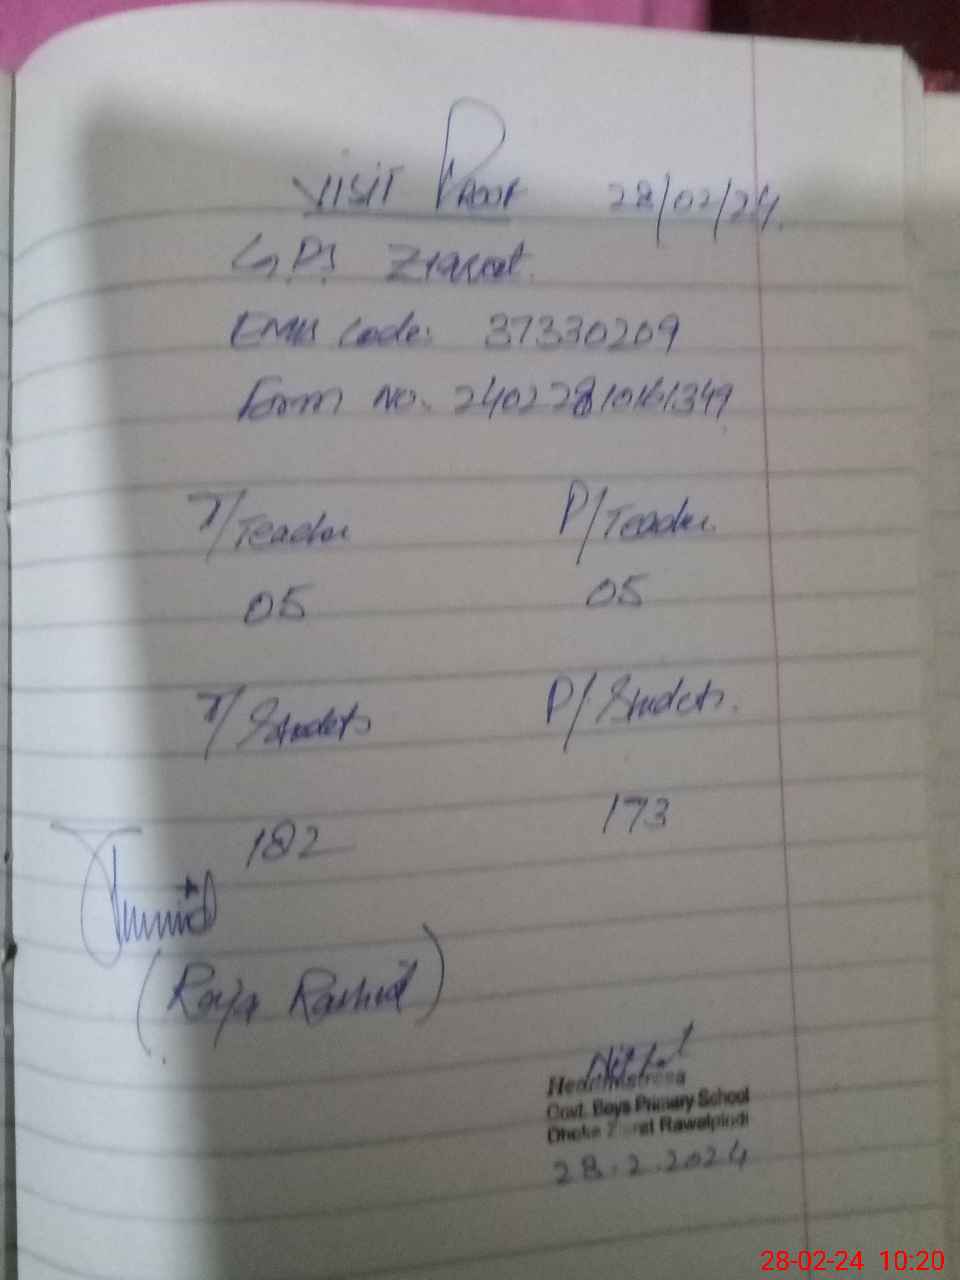 VISIT PROOF 28/02/24.
G.P.S Ziarat.
EMIS Code: 37330209
Form No. 24022810161349
T/Teacher P/Teacher.
05 05
T/Students P/Students.
182 173
(Raja Rashid)
Headmistress
Govt. Boys Primary School
Dhoke Ziarat Rawalpindi
28.2.2024
28-02-24 10:20